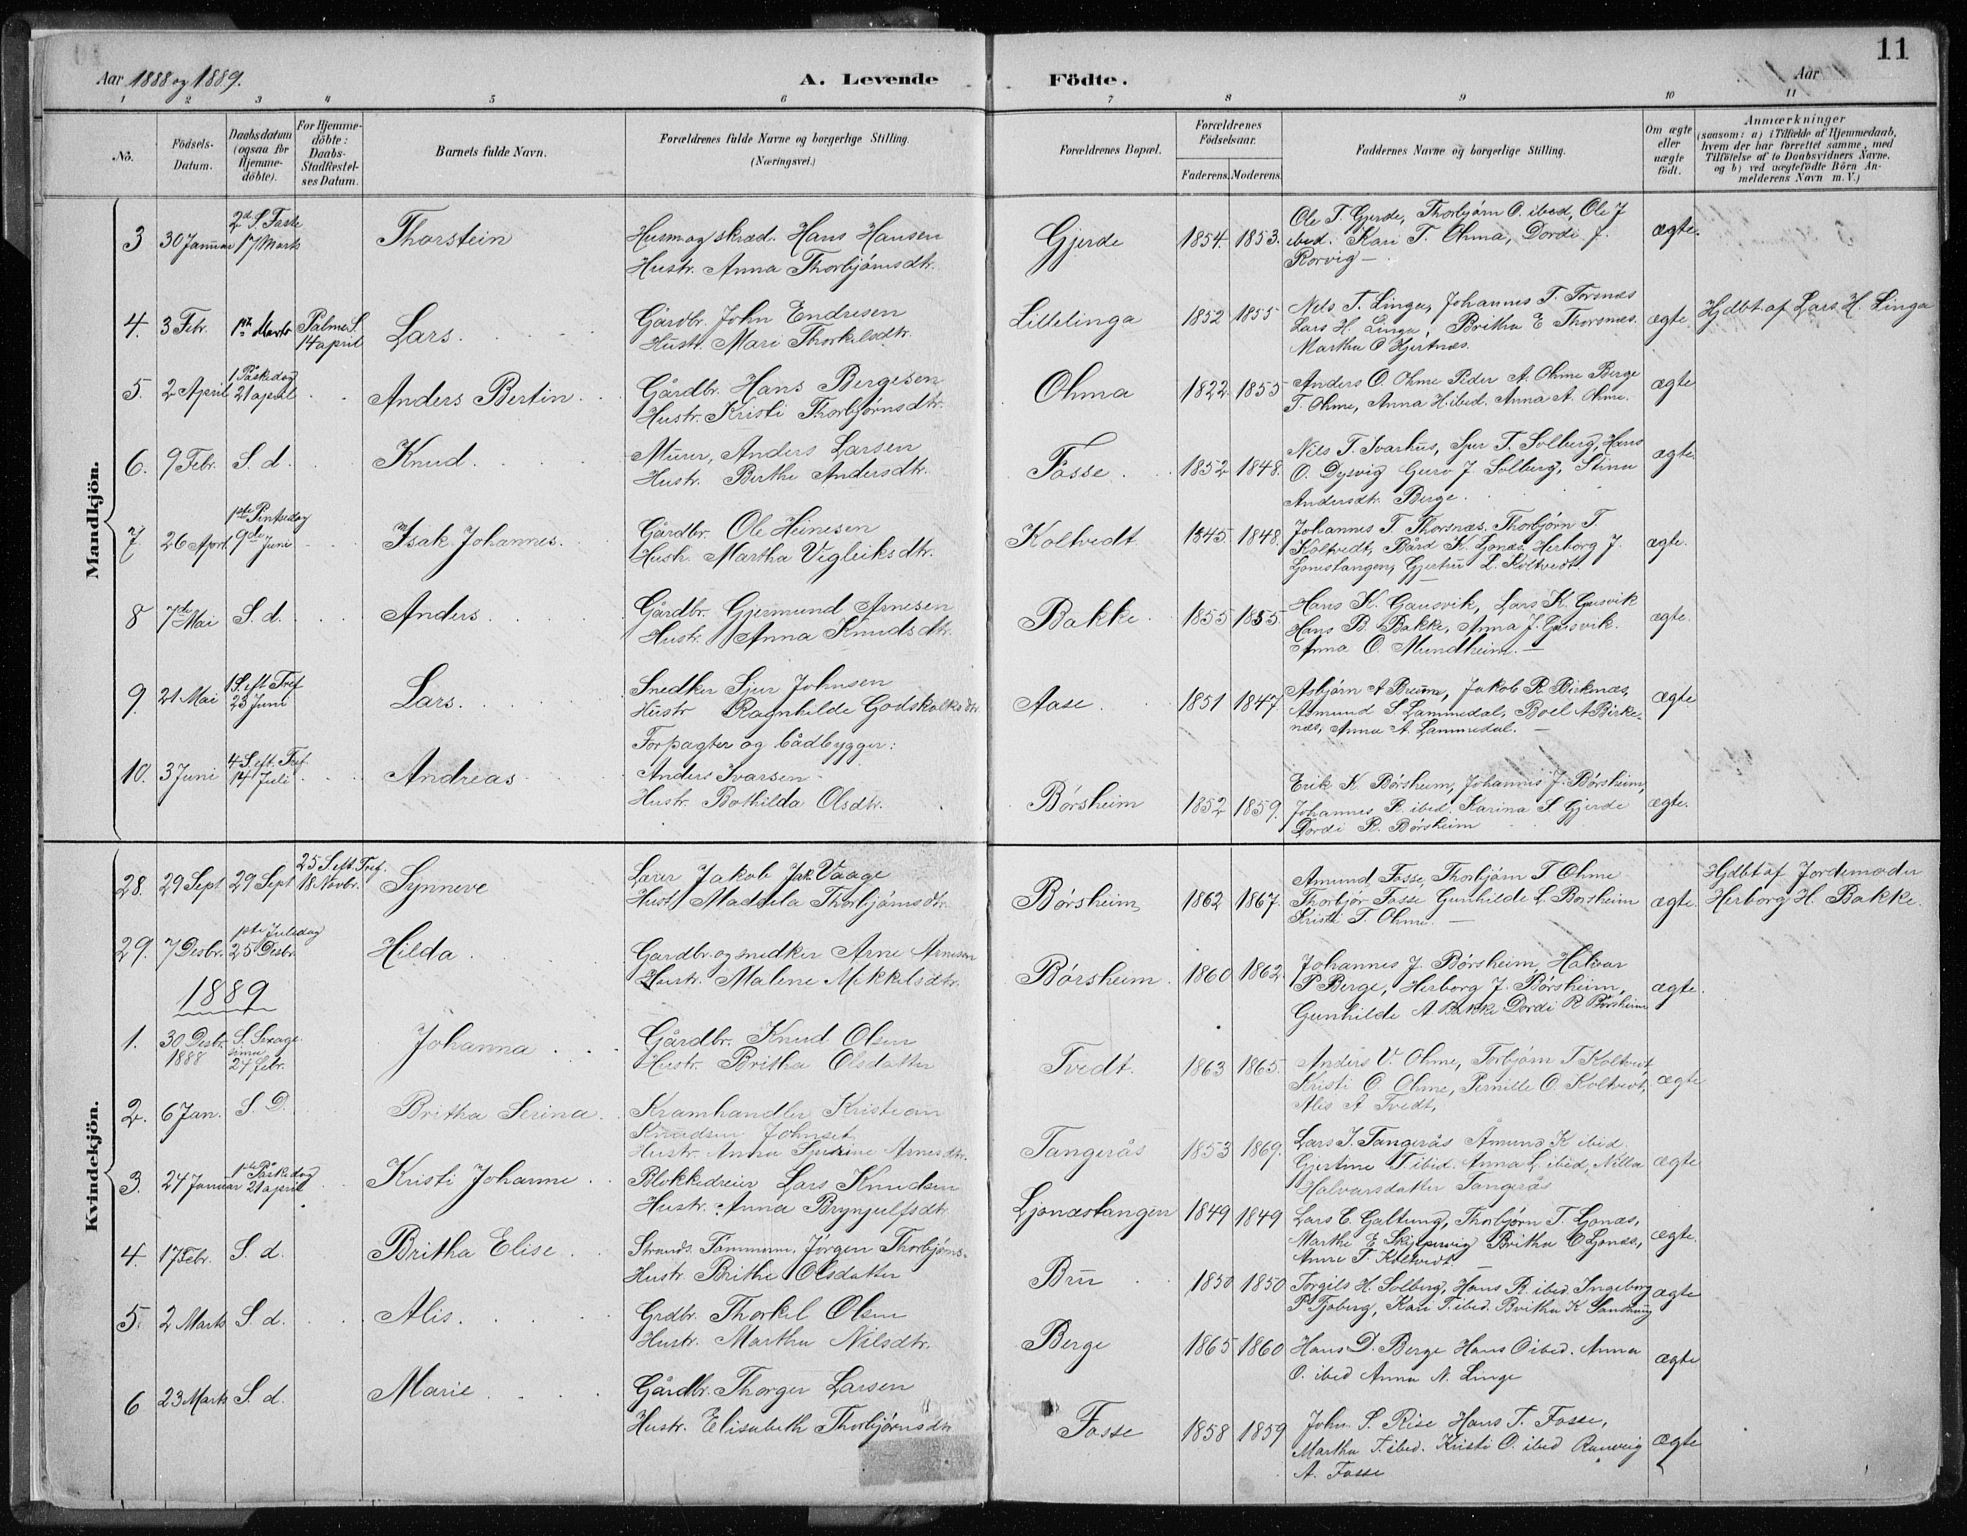 11
Aar 1888 og 1889. A. Levende Födte. Aar
1 2 3 4 5 6 7 8 9 10 11
No.
Födsels-Datum.
Daabsdatum (ogsaa for Hjemme-döbte).
For Hjemme-döbte: Daabs-Stadfæstel-ses Datum.
Barnets fulde Navn.
Forældrenes fulde Navne og borgerlige Stilling.
(Næringsvei.)
Forældrenes Bopæl.
Forældrenes Födselsaar.
Faderens. Moderens.
Faddernes Navne og borgerlige Stilling.
Om ægte eller uægte födt.
Anmærkninger
(saasom: a) i Tilfælde af Hjemmedaab, hvem der har forrettet samme, med Tilföielse af to Daabsvidners Navne, og b) ved uægtefödte Börn An-melderens Navn m. V.)
Mandkjön.
3 30 Januar 2d S. Faste 17 Marts Thorstein
Husm og skræd. Hans Hansen
Hustr. Anna Thorbjörnsdtr.
Gjerde 1854. 1853.
Ole T. Gjerde, Thorbjørn O. ibid, Ole J
ibid. Kari T. Ohma, Dordi J.
Rorvig —
ægte.
4. 3 Febr. Marts Palme S. 14 april Lars.
Gårdbr. John Endresen
Hustr. Mari Thorkelsdtr.
Lillelinga 1852 1855
Nels T. Linga, Johannes T. Torsnæs
Lars H. Linga, Britha E Thorsnæs.
Martha O Hjertnæs.
ægte Hjdbt af Lars H. Linga
5. 2 April 1 Påskedag 21 april Anders Bertin
Gårdbr. Hans Bergesen
Hustr. Kristi Thorbjørnsdtr.
Ohma 1822 1855
Anders O. Ohme Peder A. Ohme Berge
T. Ohme, Anna H. ibed. Anna A. Ohme.
ægte
6. 9 Febr. S. d. Knud.
Murer, Anders Larsen
Hustr. Berthe Andersdtr.
Fosse. 1852 1848.
Nils T. Svarhus, Sjur T. Solberg, Hans
O. Dysvig Guro J. Solberg, Stina
Andersdtr. Berge.
ægte.
7 26 April 1ste Pintsedag 9de Juni Isak Johannes.
Gårdbr. Ole Heinesen
Hustr. Martha Vigleiksdtr.
Koltvedt 1845. 1848.
Johannes T Thorsnæs. Thorbjørn T.
Koltvedt, Bård K. Ljonæs, Herborg J.
Ljonestangen, Gjertru L. Koltvedt.
ægte.
8 7de Mai S. d. Anders.
Gårdbr. Gjermund Arnesen
Hustr. Anna Knudsdtr.
Bakke. 1855 1855.
Hans K. Gausvik, Lars K. Gusvik
Hans B. Bakke, Anna J. Gusvik.
Anna O. Mundheim. —
ægte.
9. 21 Mai 1 S. eft Tref 23 Juni Lars.
Snedker Sjur Johnsen
Hustr Ragnhilde Godskalksdtr
Aase. 1851 1847
Asbjørn A Breum, Jakob R Birknæs,
Asmund S. Lammedal, Boel A Birke-
næs, Anna A. Lammedal. —
ægte
10. 3 Juni 4 S. eft. Tref. 14 Juli Andreas
Forpagter og bådbygger:
Anders Ivarsen
Hustr. Bothilda Olsdtr.
Børsheim 1852 1859.
Erik K Børsheim, Johannes J. Børsheim,
Johannes R. ibed. Karina S Gjerde
Dordi R. Børsheim
ægte.
Kvindekjön.
28. 29 Sept 29 Sept 25 S eft Tref. 18 Novbr. Synneve
Lærer Jakob Jak Vaage
Hustr Madsela Thorbjørnsdtr
Børsheim, 1862 1867.
Amund Fosse, Thorbjørn T Ohme
Thorbjør Fosse Gunhilde L. Borsheim
Kristi T Ohme. —
ægte. Hjdbt af Jordemoder
Herborg H. Bakke.
29. 7 Desbr. 1ste Juledag 25 Desbr. Hilda
Gardbr. og snedker Arne Arnesen
Hustr. Malene Mikkelsdtr.
Børsheim. 1860 1862.
Johannes J. Børsheim, Halvar
P Berge, Herborg J. Børsheim,
Gunhilde A Bakke Dordi R Børsheim
ægte.
1889
1. 30 Desbr. 1888 S. Sexage sima 24 febr. Johanna
Gårdbr. Knud Olsen
Hustr. Britha Olsdatter
Tvedt. 1863 1865.
Anders V. Ohme, Torbjørn T Koltvedt
Kristi O. Ohme, Pernille O Koltvedt,
Alis A Tvedt,
ægte
2. 6 Jan. S. D. Britha Serina
Kramhandler Kristian
Knudsen Johnset
Hustr. Anna Arnesdtr.
Tangerås 1853 1869.
Lars J. Tangerås Åmund K ibid.
Gjertine T. ibid. Anna L. ibid, Nilla
Halvarsdatter Tangerås
ægte
3. 24 Januar 1ste Påskedag 21 april Kristi Johanne
Blokkdreier Lars Knudsen
Hustr. Anna Brynjulfsdtr
Ljonæstangen 1849 1849
Lars E. Galtung, Thorbjørn T. Ljonæs,
Marthe E Skjelnevig Britha O Ljonæs,
Anne T. Koltvedt.
ægte.
4. 17 Febr. S. d. Britha Elise
Strands. Tömmerm. Jørgen Thorbjørns-
Hustr Brithe Olsdatter
Bru 1850 1850
Torgils H. Solberg, Hans R. ibed. Ingeborg
P Fjoberg, Kari T. ibed. Britha K
ægte
5. 2 Marts S. d. Alis.
Grdbr. Thorkel Olsen
Hustr. Martha Nilsdtr.
Berge 1865 1860
Hans D. Berge Hans O ibed. Anna
O. ibed Anna N. Linge
ægte
6 23 Marts S. d. Marie
Gårdbr. Thorger Larsen
Hustr. Elisabeth Thorbjørnsdtr
Fosse 1858 1859
John S. Rise Hans T. Fosse,
Martha T. ibed. Kristi O. ibed Ranveig
A. Fosse
ægte